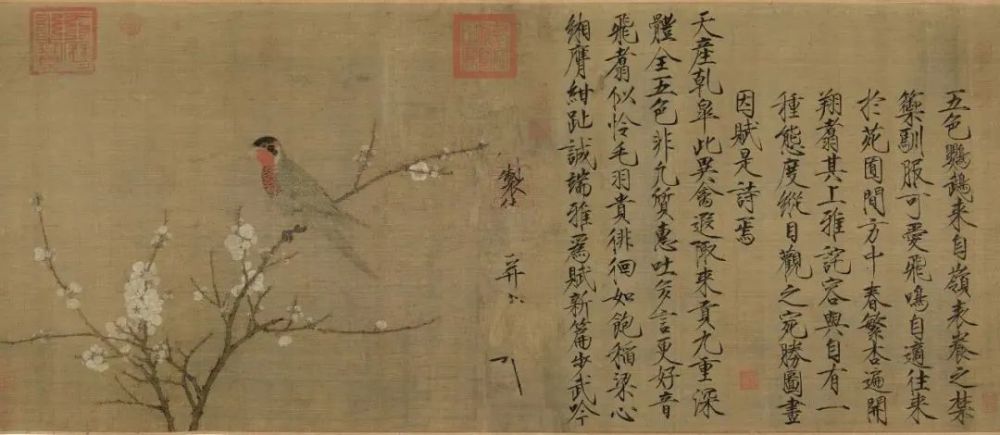 五色鸚鵡來自嶺表養之禁
籞馴服可愛飛鳴自適往來
於苑囿間方中春繁杏遍開
翔翥其上雅詫容與自有一
種態度縱目觀之宛勝圖畫
因賦是詩焉
天産乾皐此異禽遐陬來貢九重深
體全五色非凡質惠吐多言更好音
飛翥似憐毛羽貴徘徊如飽稻粱心
緗膺紺趾誠端雅爲賦新篇步武吟
製
并